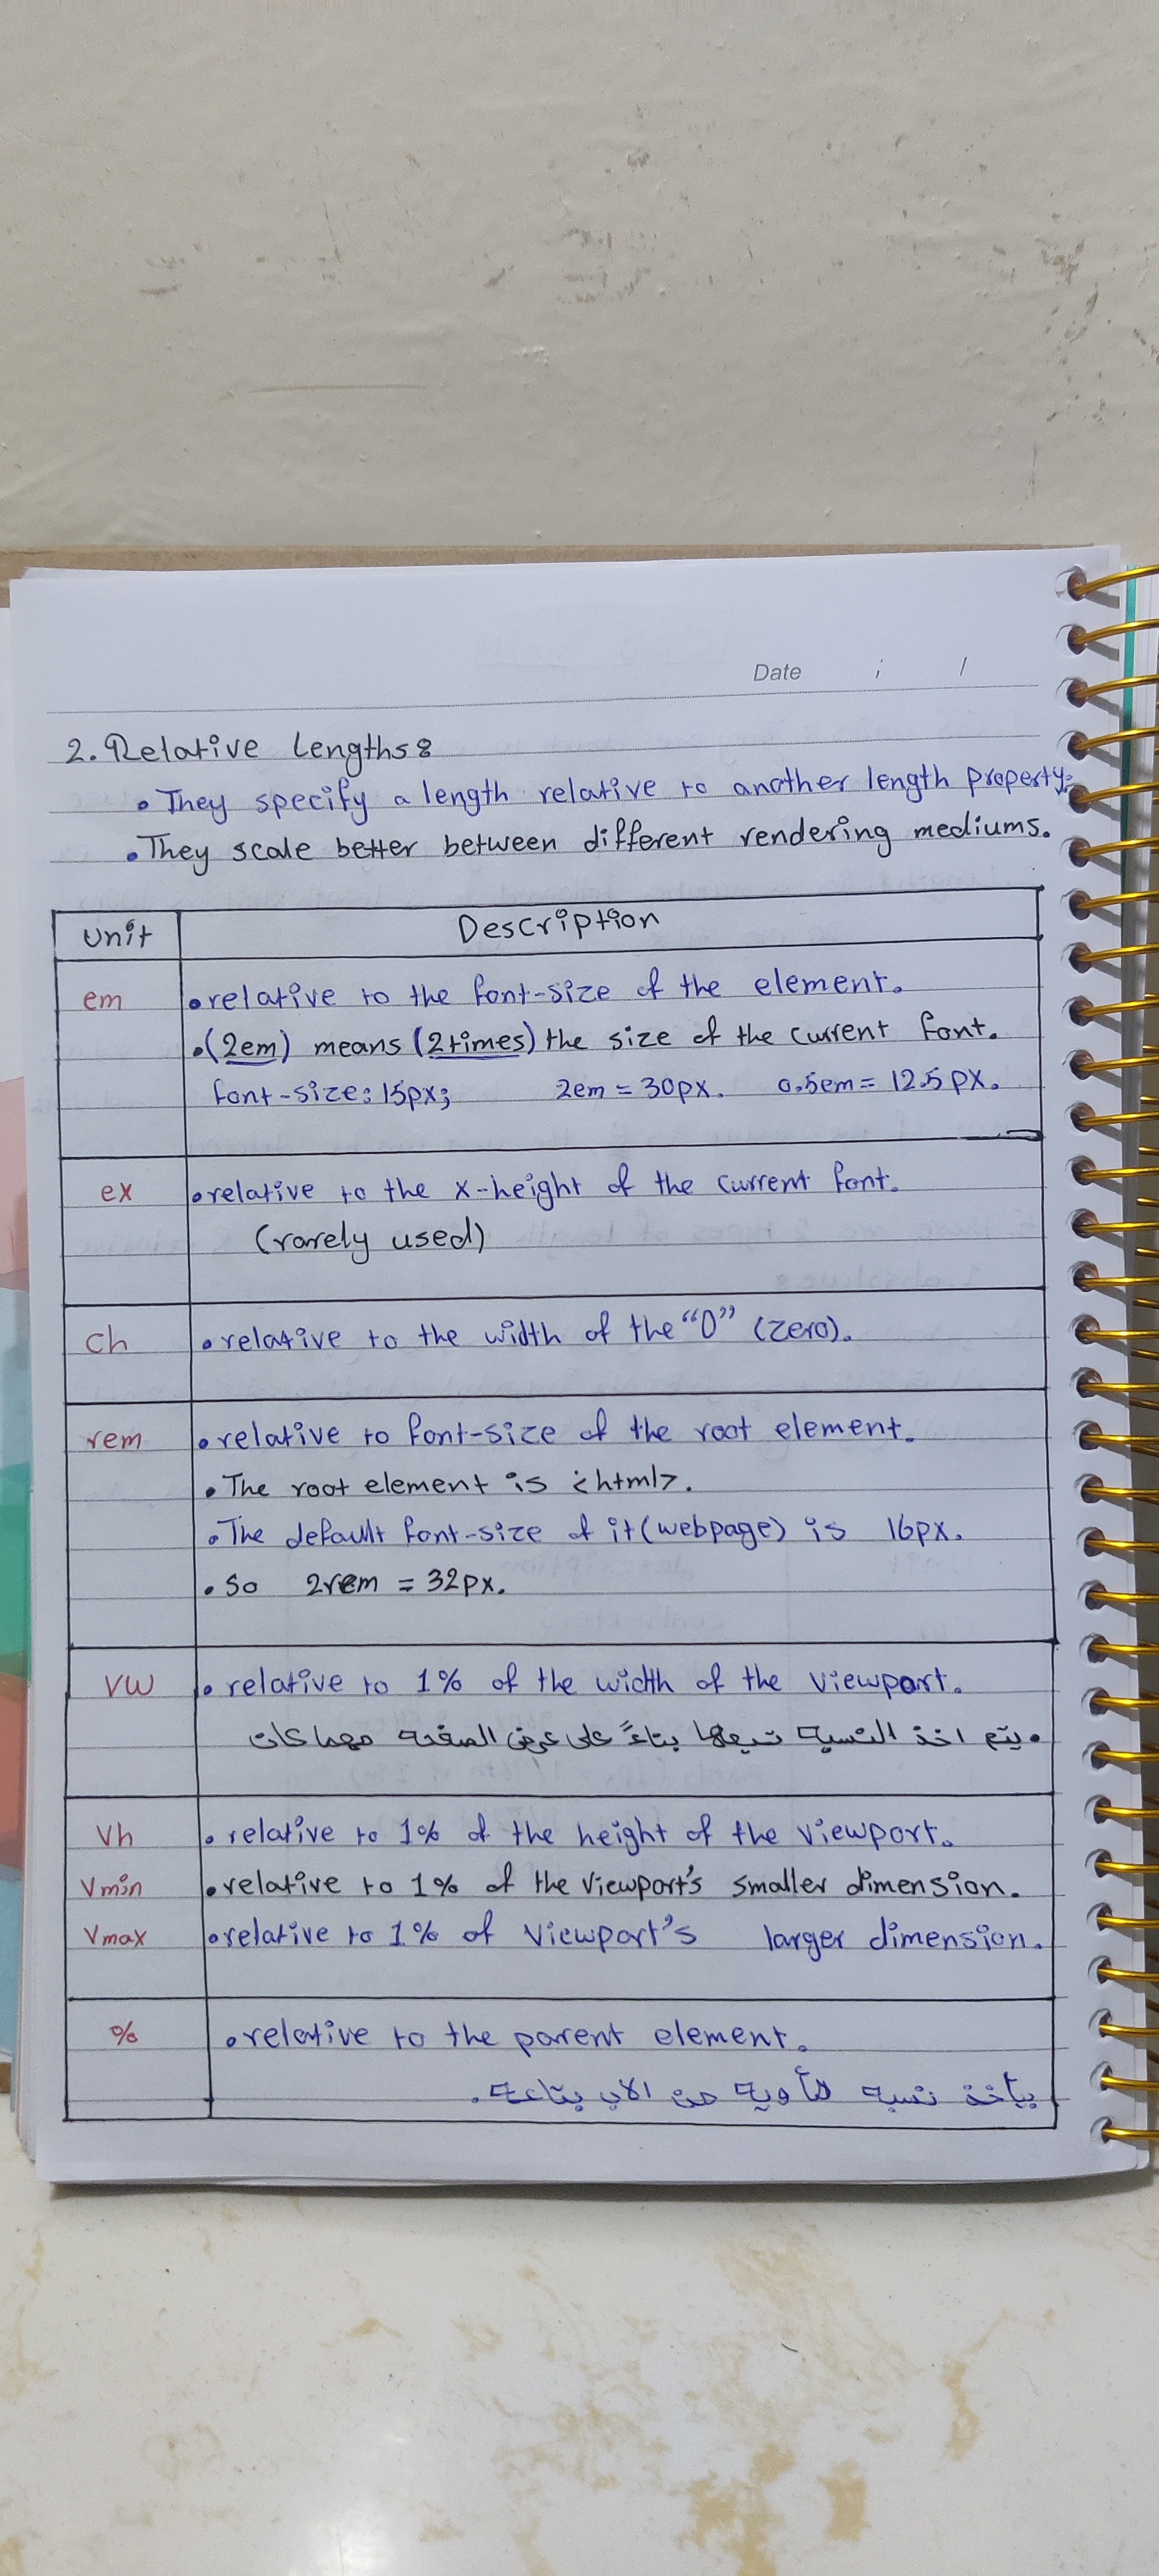 Date / /
2. Relative Lengths:
• They specify a length relative to another length property.
• They scale better between different rendering mediums.
Unit Description
em • relative to the font-size of the element.
• (2em) means (2times) the size of the current font.
font-size: 15px; 2em = 30px. 0.5em = 12.5px.
ex • relative to the x-height of the current font.
(rarely used)
ch • relative to the width of the "0" (zero).
rem • relative to font-size of the root element.
• The root element is <html>.
• The default font-size of it (webpage) is 16px.
• So 2rem = 32px.
vw • relative to 1% of the width of the viewport.
• يتم اخذ النسبة تبعها بناءً على عرض الصفحة مهما كان
Vh • relative to 1% of the height of the viewport.
Vmin • relative to 1% of the viewport's smaller dimension.
Vmax • relative to 1% of viewport's larger dimension.
% • relative to the parent element.
بتأخذ نسبة مأوية من الاب بتاعة.